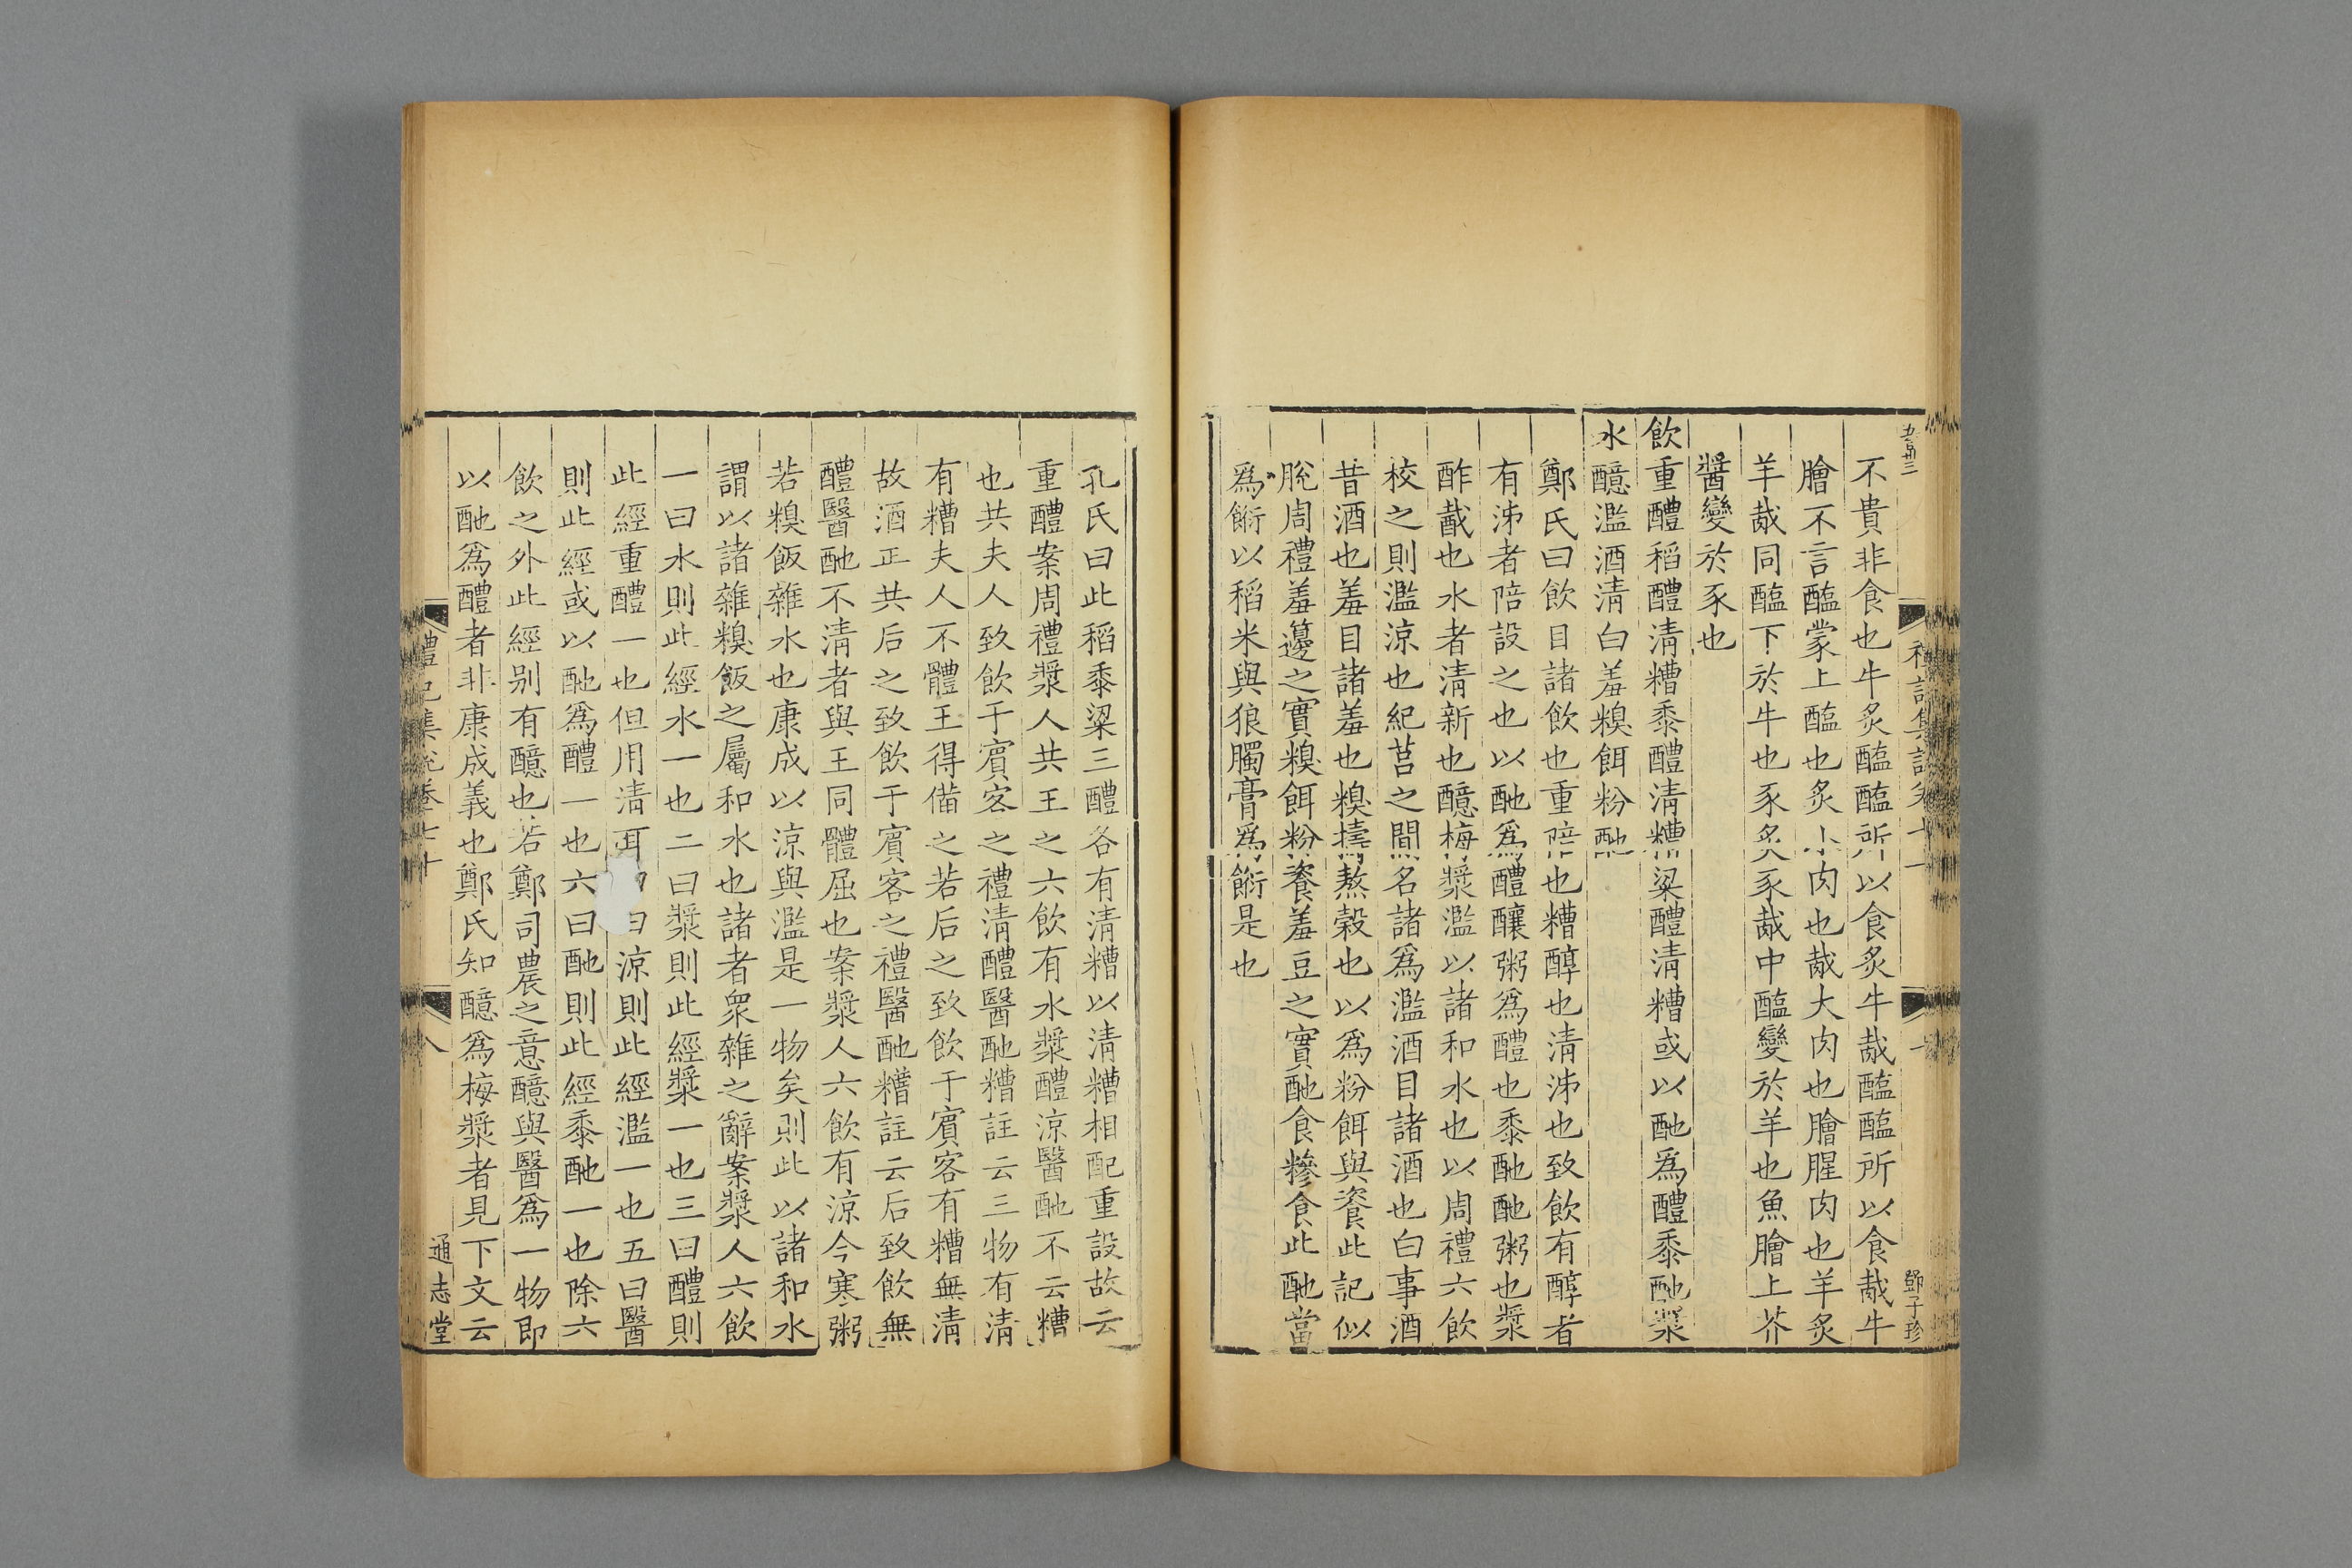 五百卅三
不貴非食也牛炙醢醢所以食炙牛胾醢醢所以食胾牛
膾不言醢蒙上醢也炙小肉也胾大肉也膾腥肉也羊炙
羊胾同醢下於牛也豕炙豕胾中醢變於羊也魚膾上芥
醬變於豕也
飲重醴稻醴淸糟黍醴淸糟粱醴淸糟或以酏爲醴黍酏漿
水醷濫酒淸白羞糗餌粉酏
鄭氏曰飲目諸飲也重陪也糟醇也淸泲也致飲有醇者
有泲者陪設之也以酏爲醴釀粥爲醴也黍酏酏粥也漿
酢酨也水者淸新也醷梅漿濫以諸和水也以周禮六飲
校之則濫涼也紀莒之間名諸爲濫酒目諸酒也白事酒
昔酒也羞目諸羞也糗擣熬穀也以爲粉餌與餈此記似
脫周禮羞籩之實糗餌粉餈羞豆之實酏食糝食此酏當
爲䬳以稻米與狼臅膏爲䬳是也
鄧子珍
孔氏曰此稻黍粱三醴各有淸糟以淸糟相配重設故云
重醴案周禮漿人共王之六飲有水漿醴涼醫酏不云糟
也共夫人致飲于賓客之禮淸醴醫酏糟註云三物有淸
有糟夫人不體王得備之若后之致飲于賓客有糟無淸
故酒正共后之致飲于賓客之禮醫酏糟註云后致飲無
醴醫酏不淸者與王同體屈也案漿人六飲有涼今寒粥
若糗飯雜水也康成以涼與濫是一物矣則此以諸和水
謂以諸雜糗飯之屬和水也諸者衆雜之辭案漿人六飲
一曰水則此經水一也二曰漿則此經漿一也三曰醴則
此經重醴一也但用淸耳曰涼則此經濫一也五曰醫
則此經或以酏爲醴一也六曰酏則此經黍酏一也除六
飲之外此經别有醷也若鄭司農之意醷與醫爲一物即
以酏爲醴者非康成義也鄭氏知醷爲梅漿者見下文云
禮記集說卷七十
八
通志堂